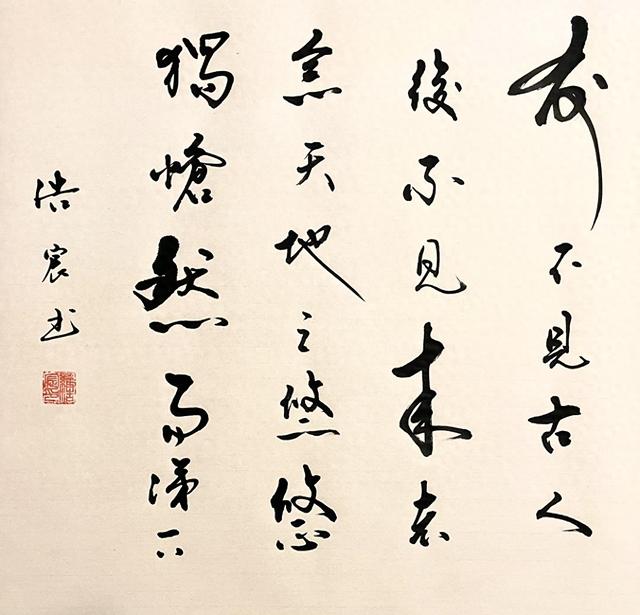 前不見古人
後不見来者
念天地之悠悠
獨愴然而涕下
浩宸书